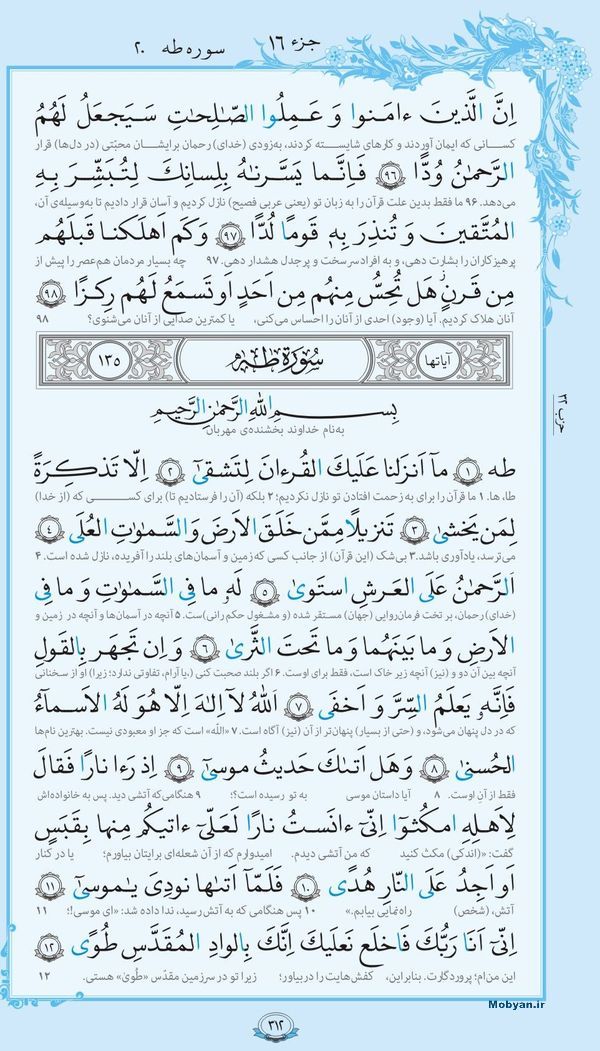 جزء ۱۶
سوره طه ۲۰
اِنَّ الَّذینَ ءامَنوا وَ عَمِلُوا الصّالِحاتِ سَیَجعَلُ لَهُمُ
کسانی که ایمان آوردند و کارهای شایسته کردند، به‌زودی (خدای) رحمان برایشان محبّتی (در دل‌ها) قرار
الرَّحمٰنُ وُدًّا ۹۶ فَاِنَّما یَسَّرناهُ بِلِسانِكَ لِتُبَشِّرَ بِهِ
می‌دهد. ۹۶ ما فقط بدین علت قرآن را به زبان تو (یعنی عربی فصیح) نازل کردیم و آسان قرار دادیم تا به‌وسیله‌ی آن،
المُتَّقینَ وَ تُنذِرَ بِهٖ قَومًا لُدًّا ۹۷ وَ کَم اَهلَکنا قَبلَهُم
پرهیزکاران را بشارت دهی، و به افراد سرسخت و پرجدل هشدار دهی. ۹۷ چه بسیار مردمان هم‌عصر را پیش از
مِن قَرنٍ هَل تُحِسُّ مِنهُم مِن اَحَدٍ اَو تَسمَعُ لَهُم رِکزًا ۹۸
آنان هلاک کردیم. آیا (وجود) احدی از آنان را احساس می‌کنی، یا کمترین صدایی از آنان می‌شنوی؟ ۹۸
آیاتها
سُورَةُ طٰهٰ
۱۳۵
بِسمِ اللهِ الرَّحمٰنِ الرَّحیمِ
به‌نام خداوند بخشنده‌ی مهربان
حزب ۳۲
طه ۱ ما اَنزَلنا عَلَیكَ القُرءانَ لِتَشقیٰ ۲ اِلّا تَذکِرَةً
طا، ها. ۱ ما قرآن را برای به زحمت افتادن تو نازل نکردیم؛ ۲ بلکه (آن را فرستادیم تا) برای کسی که (از خدا)
لِمَن یَخشیٰ ۳ تَنزیلًا مِمَّن خَلَقَ الاَرضَ وَ السَّمٰوٰتِ العُلَی ۴
می‌ترسد، یادآوری باشد. ۳ بی‌شک (این قرآن) از جانب کسی که زمین و آسمان‌های بلند را آفریده، نازل شده است. ۴
اَلرَّحمٰنُ عَلَی العَرشِ استَویٰ ۵ لَهٗ ما فِی السَّمٰوٰتِ وَ ما فِی
(خدای) رحمان، بر تخت فرمان‌روایی (جهان) مستقر شده (و مشغول حکم رانی) ست. ۵ آنچه در آسمان‌ها و آنچه در زمین و
الاَرضِ وَ ما بَینَهُما وَ ما تَحتَ الثَّریٰ ۶ وَ اِن تَجهَر بِالقَولِ
آنچه بین آن دو و (نیز) آنچه زیر خاک است، فقط برای اوست. ۶ اگر بلند صحبت کنی (،یا آرام، تفاوتی ندارد؛ زیرا) او از سخنانی
فَاِنَّهٗ یَعلَمُ السِّرَّ وَ اَخفَی ۷ اَللّٰهُ لا اِلٰهَ اِلّا هُوَ لَهُ الاَسماءُ
که در دل پنهان می‌شود، و (حتی از بسیار) پنهان‌تر از آن (نیز) آگاه است. ۷ «الله» است که جز او معبودی نیست. بهترین نام‌ها
الحُسنیٰ ۸ وَ هَل اَتٰىكَ حَدیثُ موسیٰ ۹ اِذ رَءا نارًا فَقالَ
فقط از آن اوست. ۸ آیا داستان موسی به تو رسیده است؟ ۹ هنگامی‌که آتشی دید. پس به خانواده‌اش
لِاَهلِهِ امکُثوا اِنّی ءانَستُ نارًا لَعَلّی ءاتیکُم مِنها بِقَبَسٍ
گفت: «(اندکی) مکث کنید که من آتشی دیدم. امیدوارم که از آن شعله‌ای برایتان بیاورم؛ یا در کنار
اَو اَجِدُ عَلَی النّارِ هُدًی ۱۰ فَلَمّا اَتٰىها نودِیَ یٰموسیٰ ۱۱
آتش، (شخص) راه‌نمایی بیابم.» ۱۰ پس هنگامی که به آتش رسید، ندا داده شد: «ای موسی!؛ ۱۱
اِنّی اَنَا رَبُّكَ فَاخلَع نَعلَیكَ اِنَّكَ بِالوادِ المُقَدَّسِ طُوًی ۱۲
این من‌ام؛ پروردگارت. بنابراین، کفش‌هایت را دربیاور؛ زیرا تو در سرزمین مقدّس «طُویٰ» هستی. ۱۲
Mobyan.ir
۳۱۲